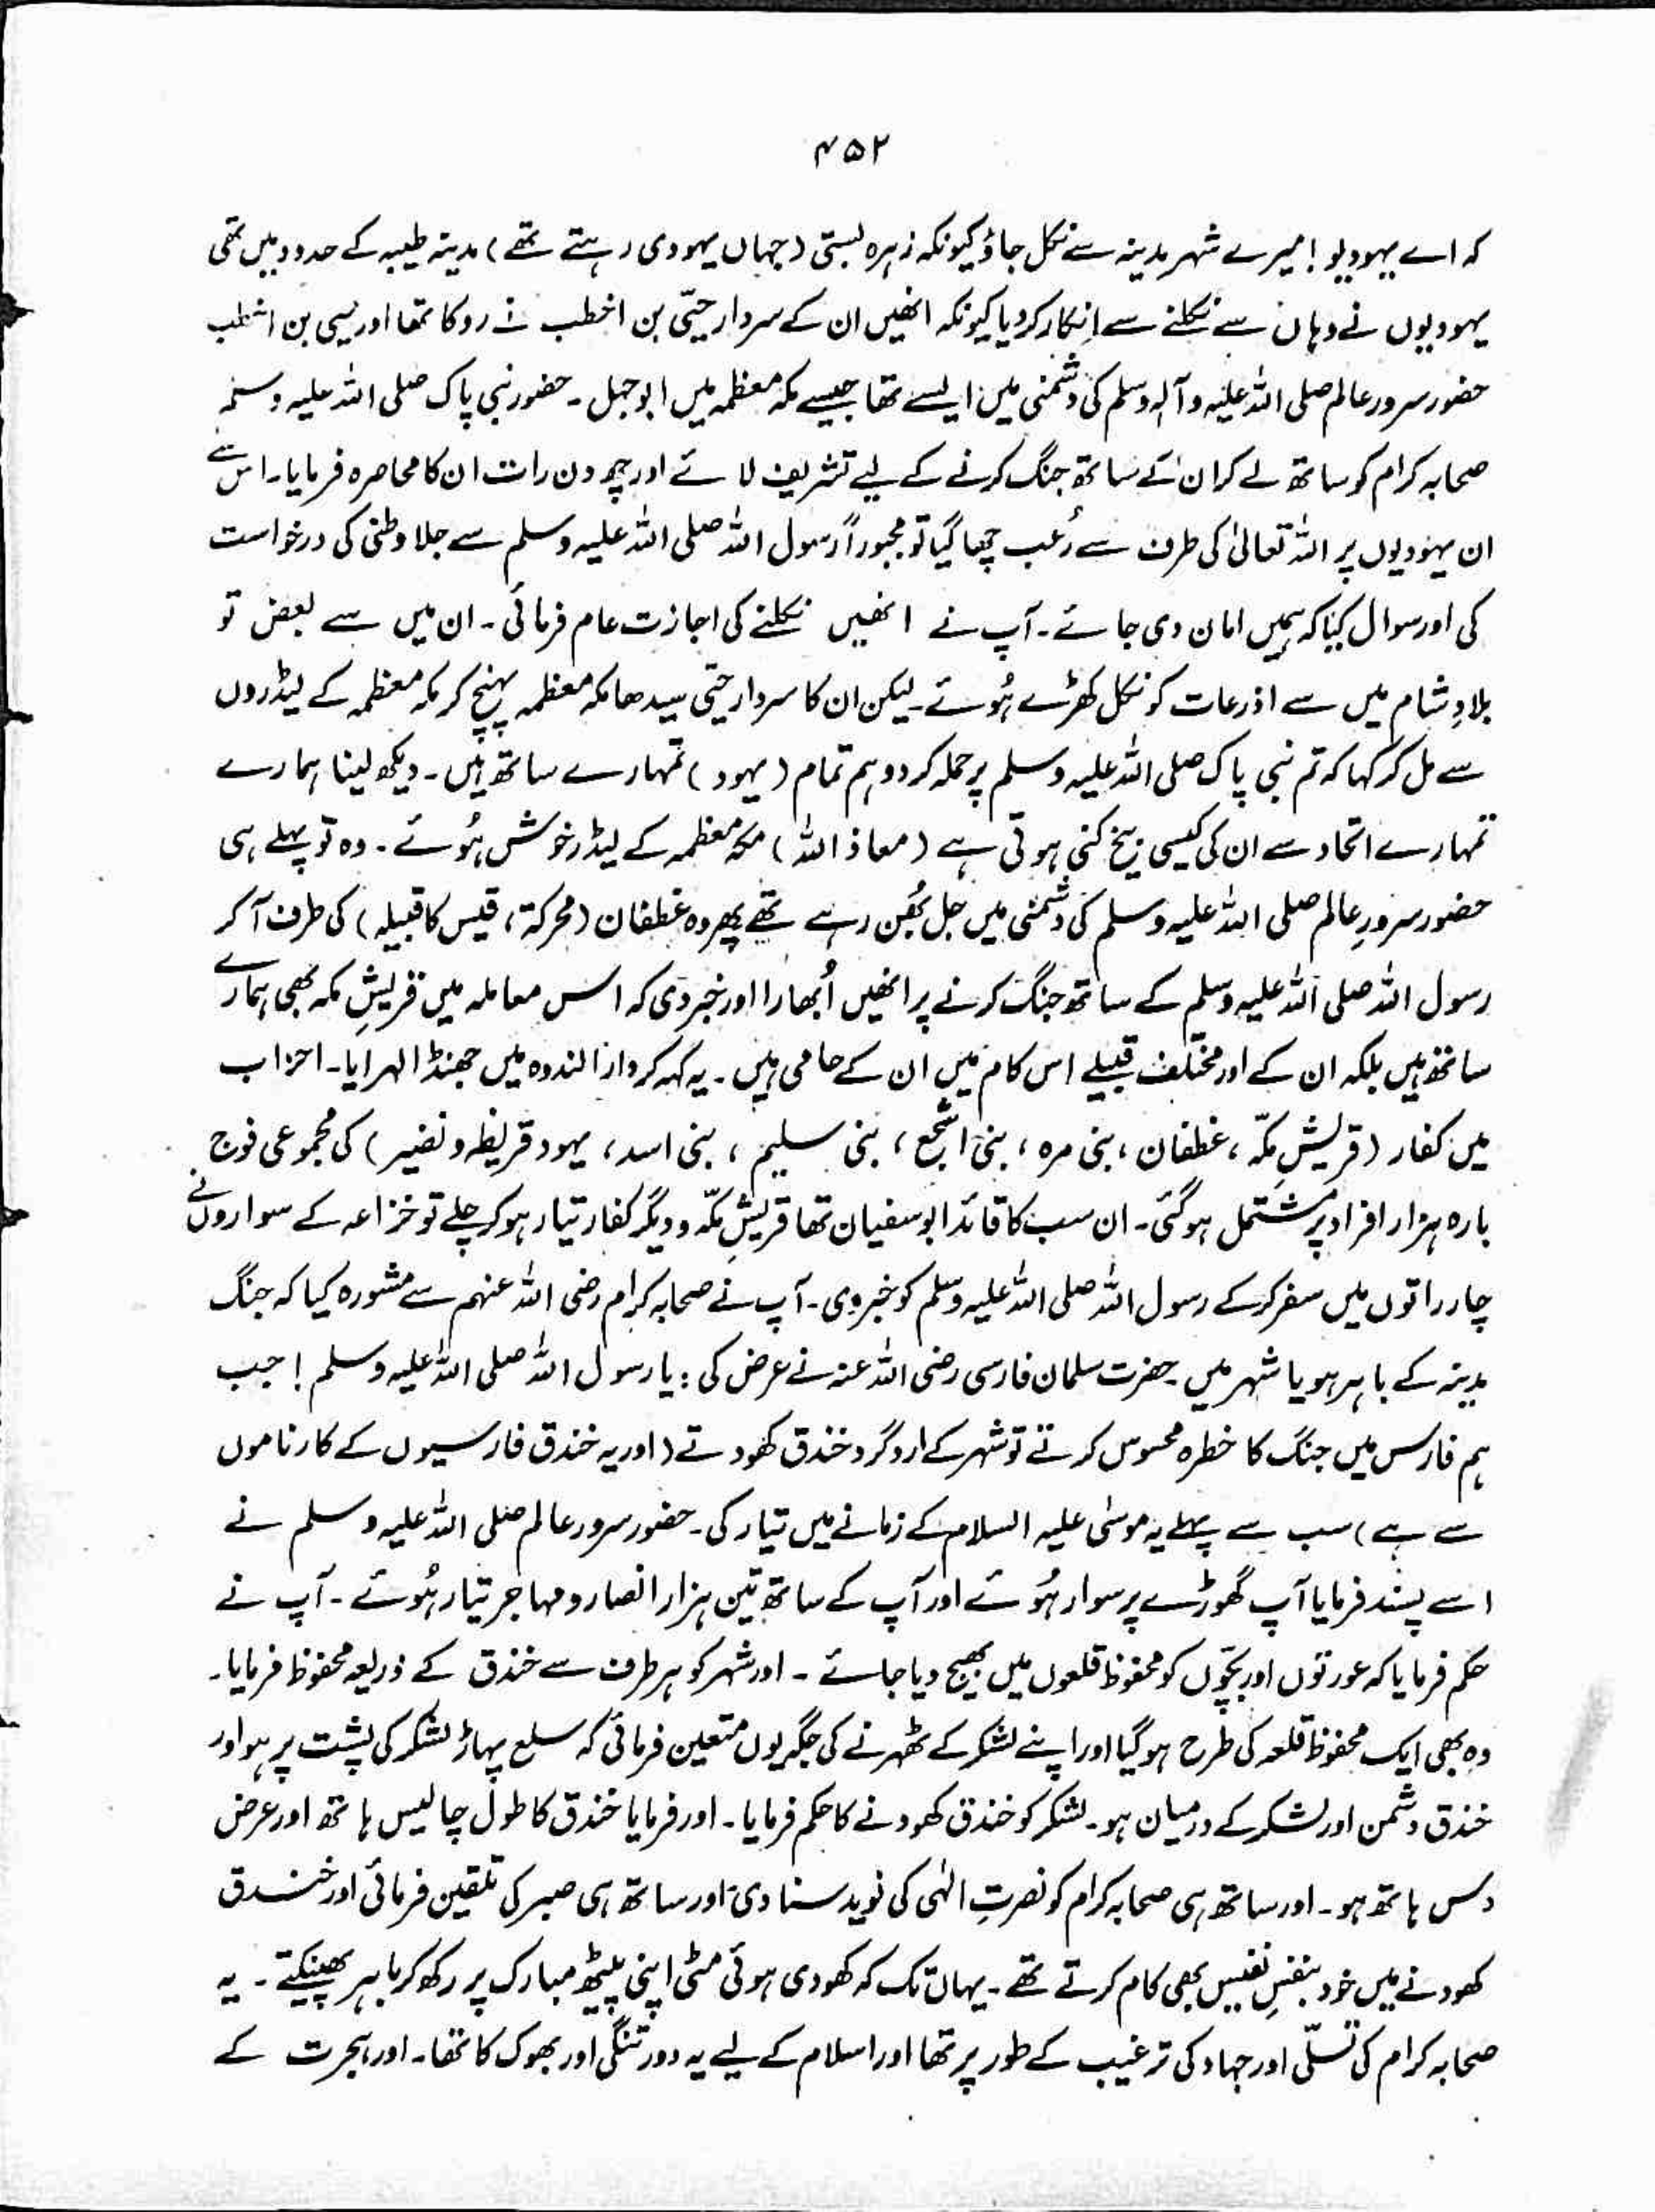 ۴۵۲
کہ اے یہودیو! میرے شہر مدینہ سے نکل جاؤ کیونکہ زہرہ بستی (جہاں یہودی رہتے تھے) مدینہ طیبہ کے حدود میں تھی
یہودیوں نے وہاں سے نکلنے سے اِنکار کردیا کیونکہ انھیں ان کے سردار حیّی بن اخطب نے روکا تھا اور یسی بن اخطب
حضور سرور عالم صلی اللہ علیہ وآلہ وسلم کی دشمنی میں ایسے تھا جیسے مکہ معظمہ میں ابوجہل۔ حضور نبی پاک صلی اللہ علیہ وسلم
صحابہ کرام کو ساتھ لے کر ان کے ساتھ جنگ کرنے کے لیے تشریف لائے اور چھ دن رات ان کا محاصرہ فرمایا۔ اس سے
ان یہودیوں پر اللہ تعالیٰ کی طرف سے رُعب چھا گیا تو مجبوراً رسول اللہ صلی اللہ علیہ وسلم سے جلا وطنی کی درخواست
کی اور سوال کیا کہ ہمیں امان دی جائے۔ آپ نے انھیں نکلنے کی اجازت عام فرمائی۔ ان میں سے بعض تو
بلادِ شام میں سے اذرعات کو نکل کھڑے ہُوئے۔ لیکن ان کا سردار حیّی سیدھا مکہ معظمہ پہنچ کر مکہ معظمہ کے لیڈروں
سے مل کر کہا کہ تم نبی پاک صلی اللہ علیہ وسلم پر حملہ کر دو ہم تمام (یہود) تمہارے ساتھ ہیں۔ دیکھ لینا ہمارے
تمہارے اتحاد سے ان کی کیسی بیخ کنی ہوتی ہے (معاذ اللہ) مکہ معظمہ کے لیڈر خوش ہُوئے۔ وہ تو پہلے ہی
حضور سرورِ عالم صلی اللہ علیہ وسلم کی دشمنی میں جل بُھن رہے تھے پھر وہ غطفان (محرکۃ، قیس کا قبیلہ) کی طرف آکر
رسول اللہ صلی اللہ علیہ وسلم کے ساتھ جنگ کرنے پر انھیں اُبھارا اور خبر دی کہ اس معاملہ میں قریشِ مکہ بھی ہمارے
ساتھ ہیں بلکہ ان کے اور مختلف قبیلے اس کام میں ان کے حامی ہیں۔ یہ کہہ کر دارالندوہ میں جھنڈا لہرایا۔ احزاب
میں کفار (قریشِ مکّہ، غطفان، بنی مرہ، بنی اشجع، بنی سلیم، بنی اسد، یہود قریظہ و نضیر) کی مجموعی فوج
بارہ ہزار افراد پر مشتمل ہوگئی۔ ان سب کا قائد ابوسفیان تھا قریشِ مکّہ و دیگر کفار تیار ہو کر چلے تو خزاعہ کے سواروں نے
چار راتوں میں سفر کرکے رسول اللہ صلی اللہ علیہ وسلم کو خبر دی۔ آپ نے صحابہ کرام رضی اللہ عنہم سے مشورہ کیا کہ جنگ
مدینہ کے باہر ہو یا شہر میں۔ حضرت سلمان فارسی رضی اللہ عنہ نے عرض کی: یا رسول اللہ صلی اللہ علیہ وسلم! جب
ہم فارس میں جنگ کا خطرہ محسوس کرتے تو شہر کے اردگرد خندق کھودتے (اور یہ خندق فارسیوں کے کارناموں
سے ہے) سب سے پہلے یہ موسیٰ علیہ السلام کے زمانے میں تیار کی۔ حضور سرور عالم صلی اللہ علیہ وسلم نے
اسے پسند فرمایا آپ گھوڑے پر سوار ہُوئے اور آپ کے ساتھ تین ہزار انصار و مہاجر تیار ہُوئے۔ آپ نے
حکم فرمایا کہ عورتوں اور بچّوں کو محفوظ قلعوں میں بھیج دیا جائے۔ اور شہر کو ہر طرف سے خندق کے ذریعہ محفوظ فرمایا۔
وہ بھی ایک محفوظ قلعہ کی طرح ہوگیا اور اپنے لشکر کے ٹھہرنے کی جگہ یوں متعین فرمائی کہ سلع پہاڑ لشکر کی پشت پر ہو اور
خندق دشمن اور لشکر کے درمیان ہو۔ لشکر کو خندق کھودنے کا حکم فرمایا۔ اور فرمایا خندق کا طول چالیس ہاتھ اور عرض
دس ہاتھ ہو۔ اور ساتھ ہی صحابہ کرام کو نصرتِ الٰہی کی نوید سنا دی اور ساتھ ہی صبر کی تلقین فرمائی اور خندق
کھودنے میں خود بنفسِ نفیس بھی کام کرتے تھے۔ یہاں تک کہ کھودی ہوئی مٹی اپنی پیٹھ مبارک پر رکھ کر باہر پھینکتے۔ یہ
صحابہ کرام کی تسلّی اور جہاد کی ترغیب کے طور پر تھا اور اسلام کے لیے یہ دور تنگی اور بھوک کا تھا۔ اور ہجرت کے